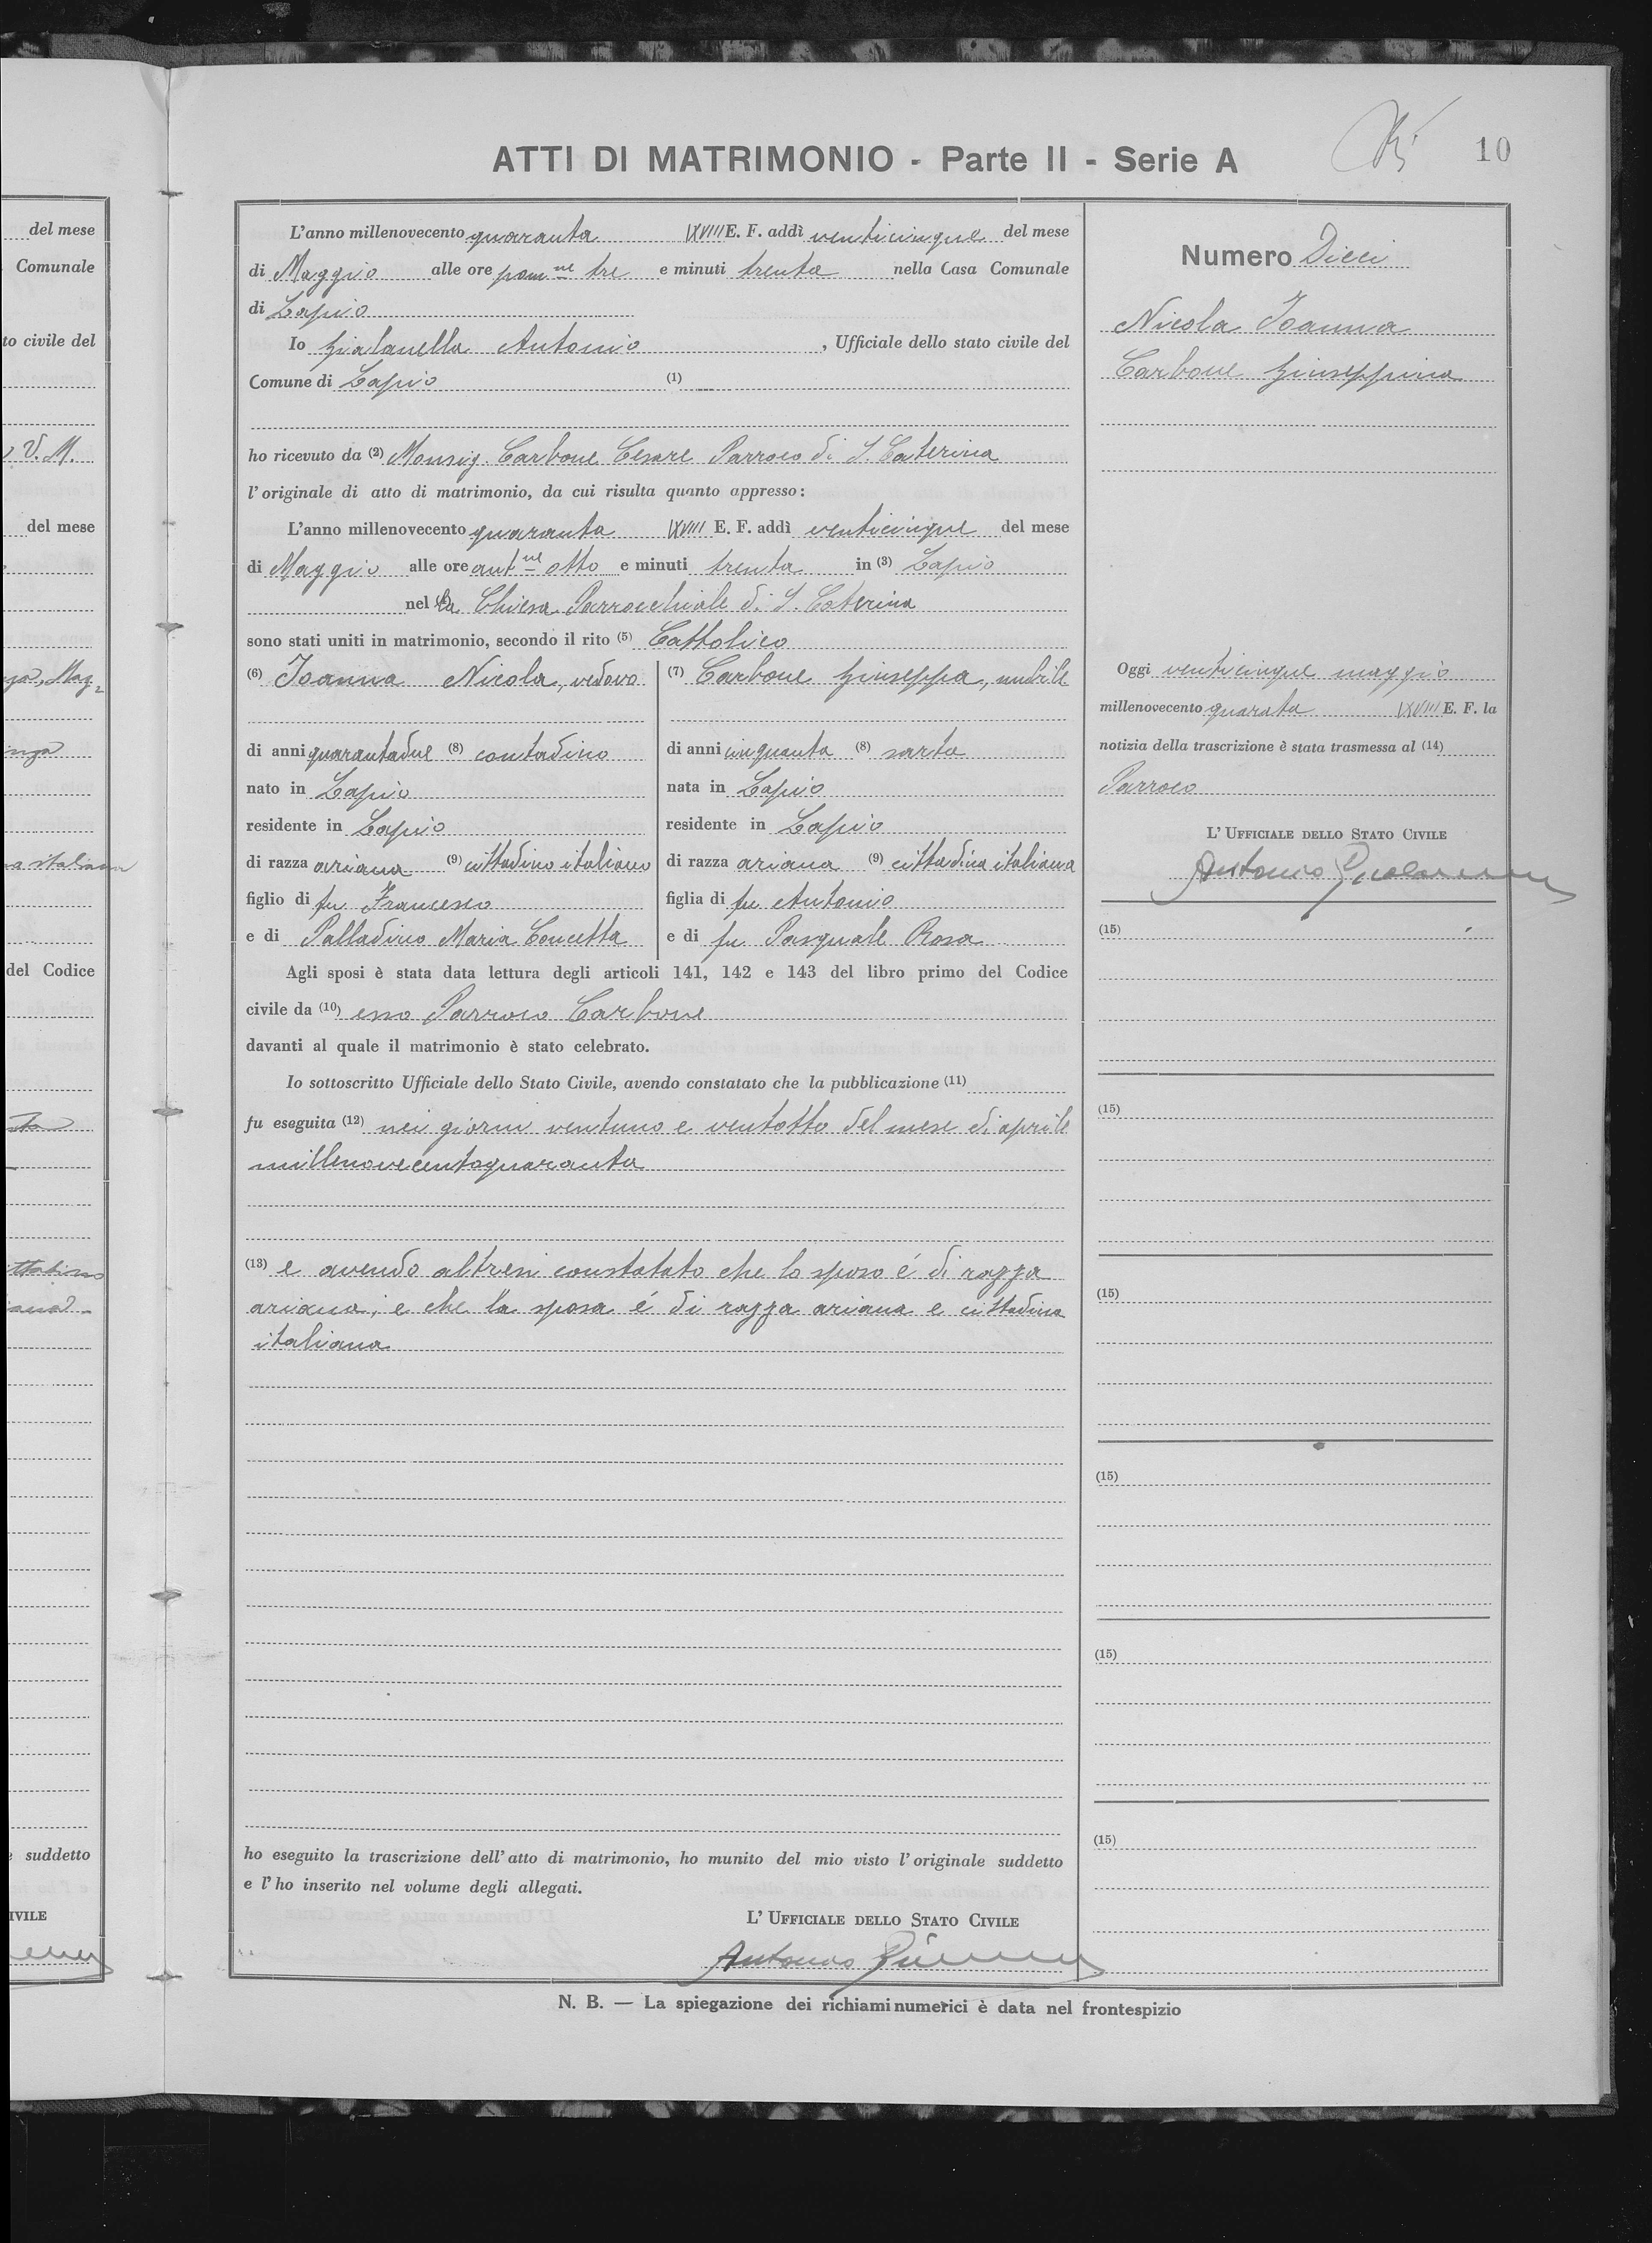 del mese
Comunale
to civile del
V. M.
del mese
a italiana
del Codice
suddetto
IVILE
ATTI DI MATRIMONIO - Parte II - Serie A
10
L'anno millenovecento quaranta XVIII E. F. addì venticinque del mese
di Maggio alle ore pom.ne tre e minuti trenta nella Casa Comunale
di Lapio
Io Gialanella Antonio, Ufficiale dello stato civile del
Comune di Lapio (1)
ho ricevuto da (2) Monsig. Carbone Cesare Parroco di S. Caterina
l'originale di atto di matrimonio, da cui risulta quanto appresso:
L'anno millenovecento quaranta XVIII E. F. addì venticinque del mese
di Maggio alle ore ant.ne otto e minuti trenta in (3) Lapio
nella Chiesa Parrocchiale di S. Caterina
sono stati uniti in matrimonio, secondo il rito (5) Cattolico
(6) Ioanna Nicola, vedovo
di anni quarantadue (8) contadino
nato in Lapio
residente in Lapio
di razza ariana (9) cittadino italiano
figlio di fu Francesco
e di Palladino Maria Concetta
(7) Carbone Giuseppa, nubile
di anni cinquanta (8) sarta
nata in Lapio
residente in Lapio
di razza ariana (9) cittadina italiana
figlia di fu Antonio
e di fu Pasquale Rosa
Agli sposi è stata data lettura degli articoli 141, 142 e 143 del libro primo del Codice
civile da (10) esso Parroco Carbone
davanti al quale il matrimonio è stato celebrato.
Io sottoscritto Ufficiale dello Stato Civile, avendo constatato che la pubblicazione (11)
fu eseguita (12) nei giorni ventuno e ventotto del mese di aprile
millenovecentoquaranta
(13) e avendo altresì constatato che lo sposo é di razza
ariana, e che la sposa é di razza ariana e cittadina
italiana
ho eseguito la trascrizione dell'atto di matrimonio, ho munito del mio visto l'originale suddetto
e l'ho inserito nel volume degli allegati.
L'UFFICIALE DELLO STATO CIVILE
Antonio
Numero Dieci
Nicola Ioanna
Carbone Giuseppina
Oggi venticinque maggio
millenovecento quarata XVIII E. F. la
notizia della trascrizione è stata trasmessa al (14)
Parroco
L'UFFICIALE DELLO STATO CIVILE
Antonio
(15)
(15)
(15)
(15)
(15)
(15)
N. B. — La spiegazione dei richiami numerici è data nel frontespizio